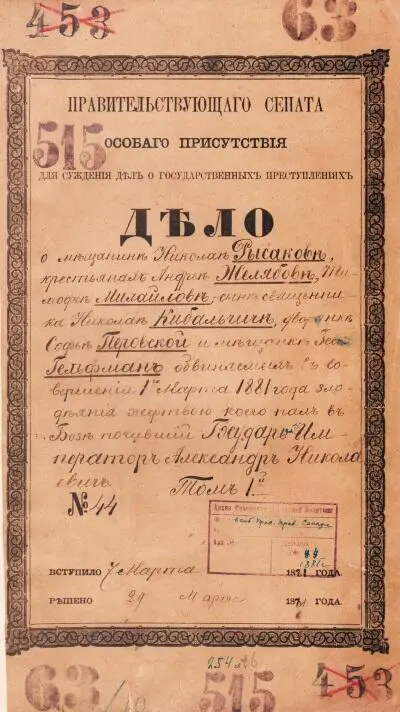 453 63
ПРАВИТЕЛЬСТВУЮЩАГО СЕНАТА
515
ОСОБАГО ПРИСУТСТВІЯ
ДЛЯ СУЖДЕНІЯ ДѢЛЪ О ГОСУДАРСТВЕННЫХЪ ПРЕСТУПЛЕНІЯХЪ
ДѢЛО
о мѣщанинѣ Николаѣ Рысаковѣ,
крестьянахъ Андреѣ Желябовѣ, Ти-
мофеѣ Михайловѣ, сынѣ священни-
ка Николаѣ Кибальчичѣ, дворянкѣ
Софьѣ Перовской и мѣщанкѣ Гесѣ
Гельфманъ обвиняемыхъ въ со-
вершеніи 1го Марта 1881 года зло-
дѣянія жертвою коего палъ въ
Бозѣ почившій Государь Им-
ператоръ Александръ Никола
евичъ.
№ 44 Томъ 1й
Архив
Особ. Прис. Прав. Сената
44
1881 г.
ВСТУПИЛО 7 Марта 1881 ГОДА.
РѢШЕНО 29 Марта 1881 ГОДА.
254
63 515 453